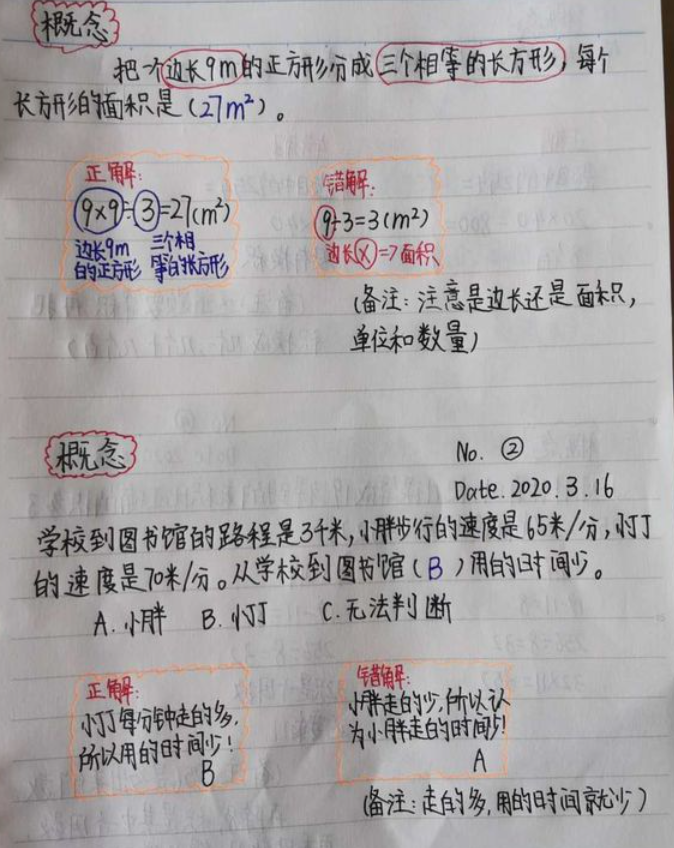 概念
把一个边长9m的正方形分成三个相等的长方形，每个
长方形的面积是（27m²）。
正解：
9×9÷3=27(m²)
边长9m 三个相
的正方形 等的长方形
错解：
9÷3=3(m²)
边长(×)=7面积
(备注：注意是边长还是面积，
单位和数量)
概念
No. ②
Date. 2020.3.16
学校到图书馆的路程是3千米，小胖步行的速度是65米/分，小丁
的速度是70米/分。从学校到图书馆（B）用的时间少。
A. 小胖 B. 小丁 C. 无法判断
正解：
小丁每分钟走的多，
所以用的时间少！
B
错解：
小胖走的少，所以认
为小胖走的时间少！
A
(备注：走的多，用的时间就少)